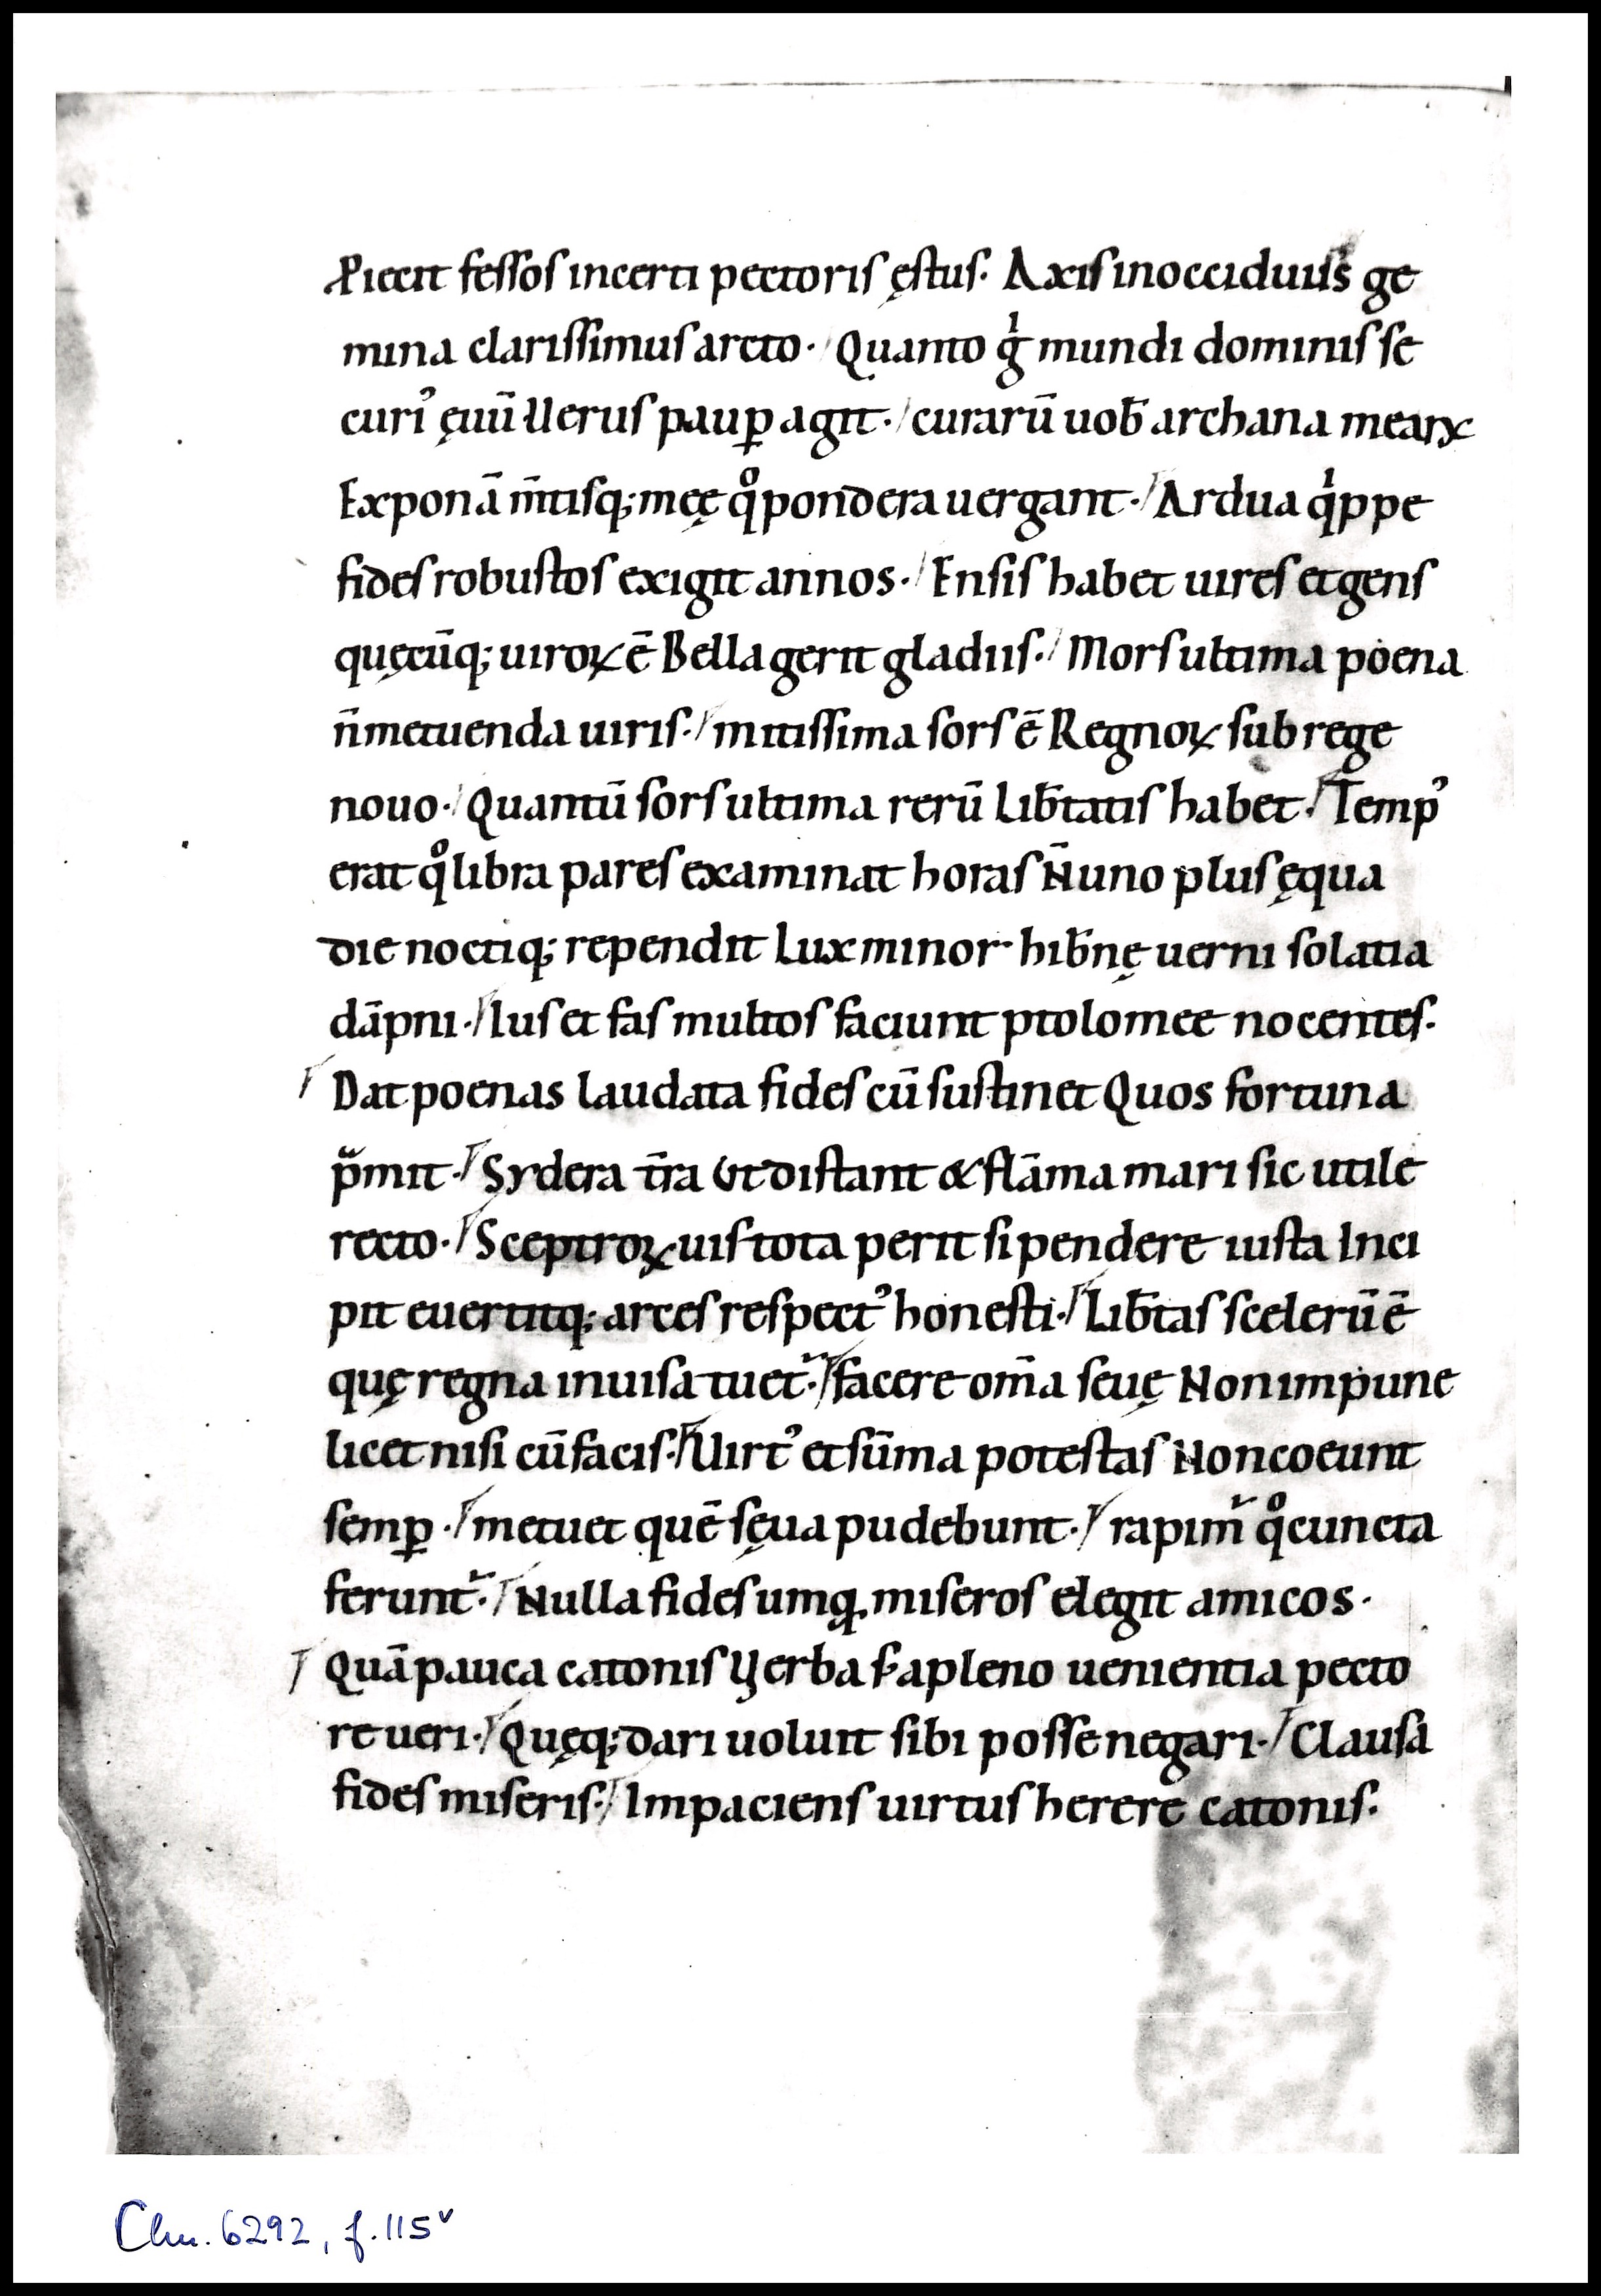 Piecit fessos incerti pectoris ęstus. Axis inocciduus ge
mina clarissimus arcto. Quanto gͥ mundi dominis se
curiꝰ ęuū Uerus pauꝑ agit. curarū uob̄ archana mearꝝ
Exponā m̄tisq; męę qͦ pondera uergant. Ardua qͥppe
fides robustos exigit annos. Ensis habet uires et gens
quęcūq; uiroꝝ ē Bella gerit gladiis. Mors ultima poena
n̄ metuenda uiris. mitissima sors ē Regnoꝝ sub rege
nouo. Quantū sors ultima rerū Lib̄tatis habet. Tempꝰ
erat qͦ libra pares examinat horas N̄ uno plus ęqua
die noctiq; rependit Lux minor hib̄nę uerni solatia
dāpni. Ius et fas multos faciunt ptolomee nocentes.
Dat poenas laudata fides cū sustinet Quos fortuna
p̄mit. Sydera t̄ra Ut distant & flāma mari sic utile
recto. Sceptroꝝ uis tota perit si pendere iusta Inci
pit euertitq; arces respectꝰ honesti. Lib̄tas scelerū ē
quę regna inuisa tuet᷑. facere om̄a seuę Non impune
licet nisi cū facis. Uirtꝰ et sūma potestas Non coeunt
semꝑ. metuet quē sęua pudebunt. rapim᷑ qͦ cuncta
ferunt᷑. Nulla fides umq̄ miseros elegit amicos.
Quā pauca catonis Uerba s; a pleno uenientia pecto
re ueri. Quęq; dari uoluit sibi posse negari. Clausa
fides miseris. Impaciens uirtus herere catonis.
Clm. 6292, f. 115ᵛ